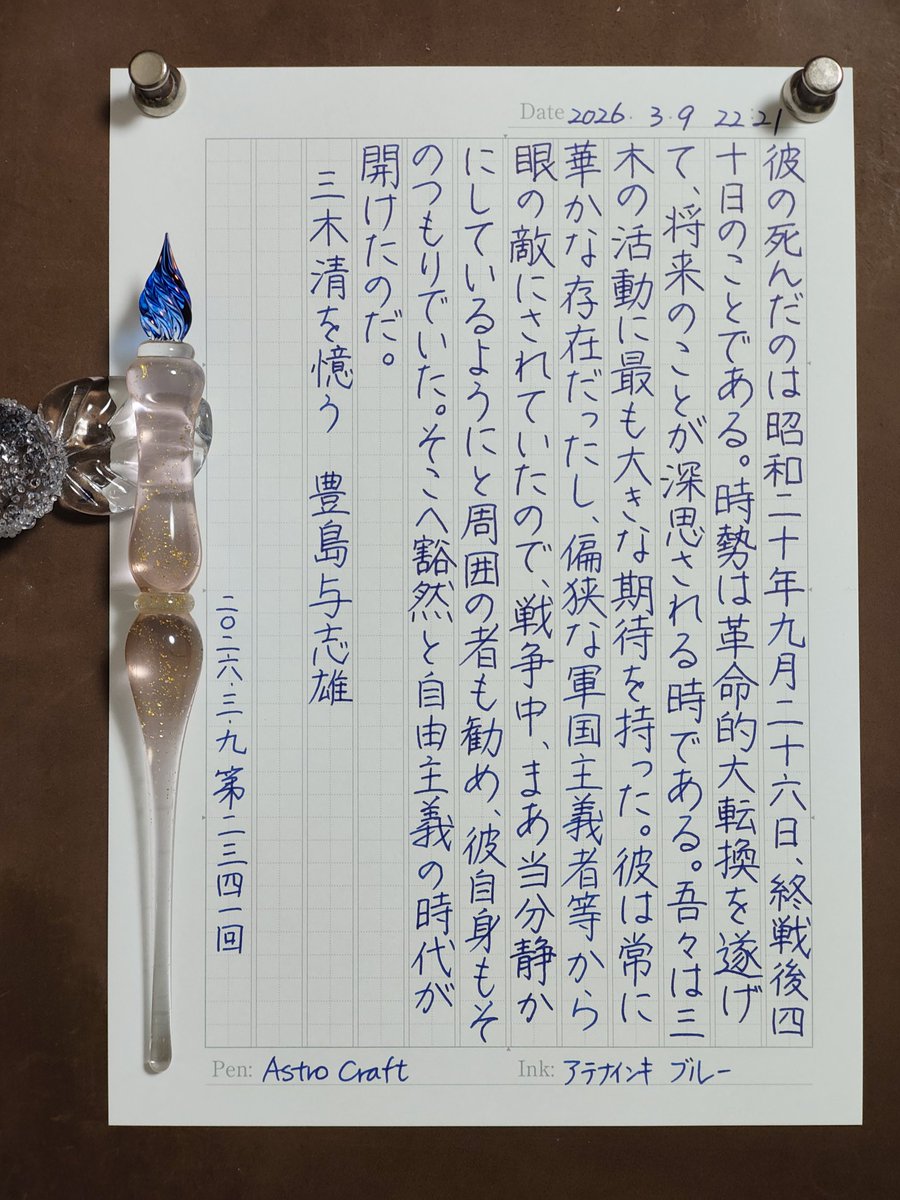 Date 2026. 3. 9 22:21
彼の死んだのは昭和二十年九月二十六日、終戦後四
十日のことである。時勢は革命的大転換を遂げ
て、将来のことが深思される時である。吾々は三
木の活動に最も大きな期待を持った。彼は常に
華かな存在だったし、偏狭な軍国主義者等から
眼の敵にされていたので、戦争中、まあ当分静か
にしているようにと周囲の者も勧め、彼自身もそ
のつもりでいた。そこへ豁然と自由主義の時代が
開けたのだ。
三木清を憶う 豊島与志雄
二〇二六.三.九 第二三四一回
Pen: Astro Craft
Ink: アテナインキ ブルー